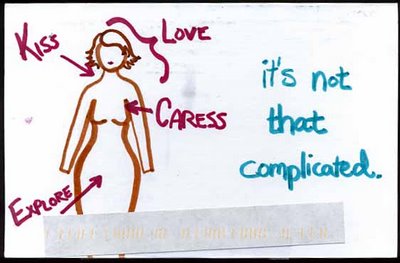 KISS
LOVE
CARESS
EXPLORE
it's not
that
complicated.